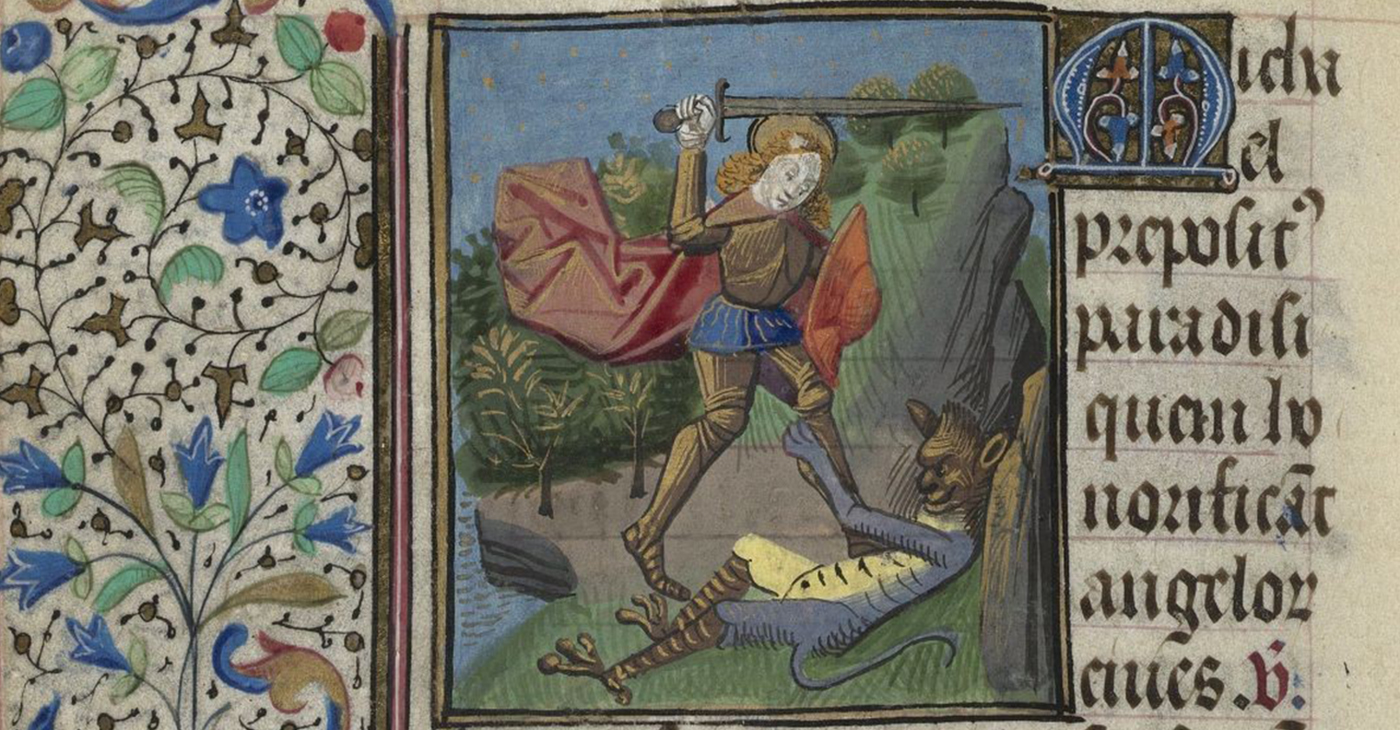 Micha
el
preposit⁹
paradisi
quem ho
norificāt
angelor
ciues. ℣.